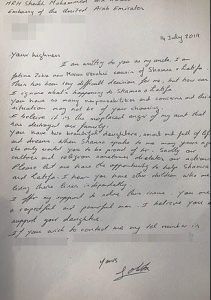 HRH Sheikh Mohammed
Embassy of the United Arab Emirates
14 July 2019
Your highness
I am writing to you as my uncle, I am
This has been very difficult decision for me, but how can
I ignore what's happening to Shamsa + Latifa
You have so many responsibilities and concerns and this
situation may not be of your choosing
I believe it is the neglected anger of my aunt that
has destroyed our family.
You have two beautiful daughters, smart and full of life
and dreams. When Shamsa spoke to me many years ago
she only wanted you to be proud of her. Sadly our
culture and religion sometimes dictates our actions
Please let me have the opportunity to help Shamsa
and Latifa. I hear you have other children who are
living there lives independently
I offer my support to solve this issue. You are
a respectful and powerful man. I believe you can
support your daughters
If you wish to contact me my tel number is
Yours